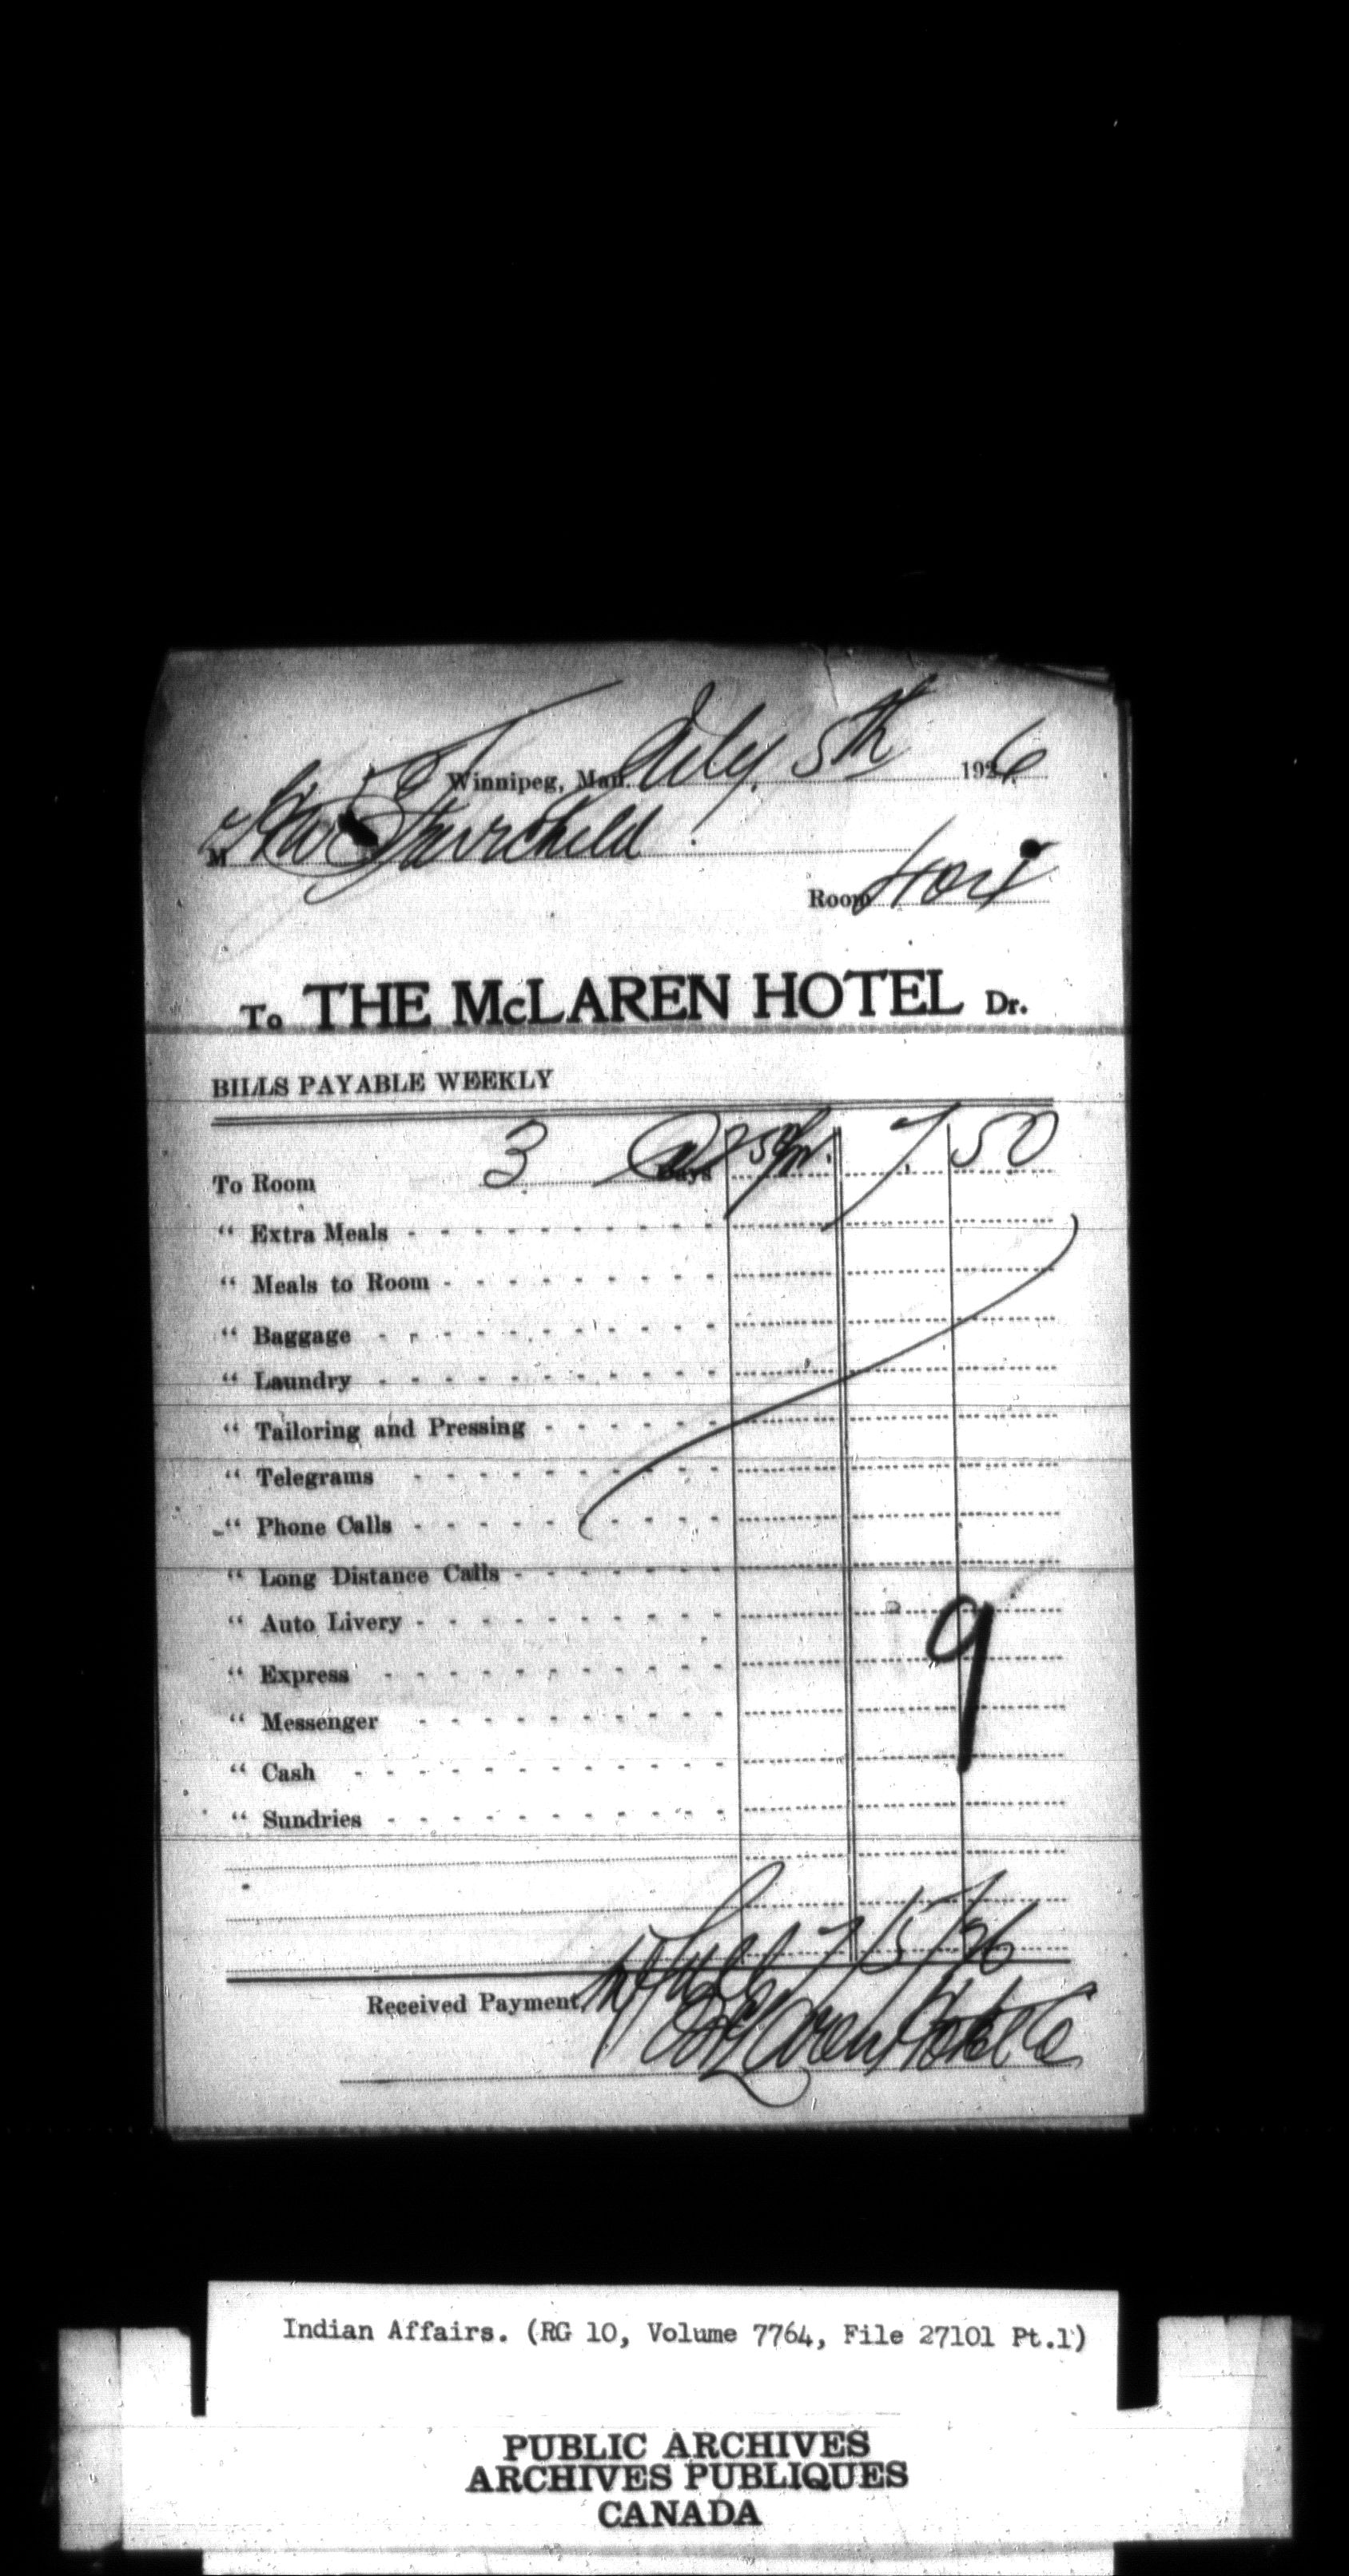 Winnipeg, Man. July 5th 1926
M Fairchild
Room
To THE McLAREN HOTEL Dr.
BILLS PAYABLE WEEKLY
To Room 3 Days 250 7 50
" Extra Meals
" Meals to Room
" Baggage
" Laundry
" Tailoring and Pressing
" Telegrams
" Phone Calls
" Long Distance Calls
" Auto Livery
9
" Express
" Messenger
" Cash
" Sundries
7/5/26
Received Payment, in full
McLaren Hotel Co
Indian Affairs. (RG 10, Volume 7764, File 27101 Pt.1)
PUBLIC ARCHIVES
ARCHIVES PUBLIQUES
CANADA